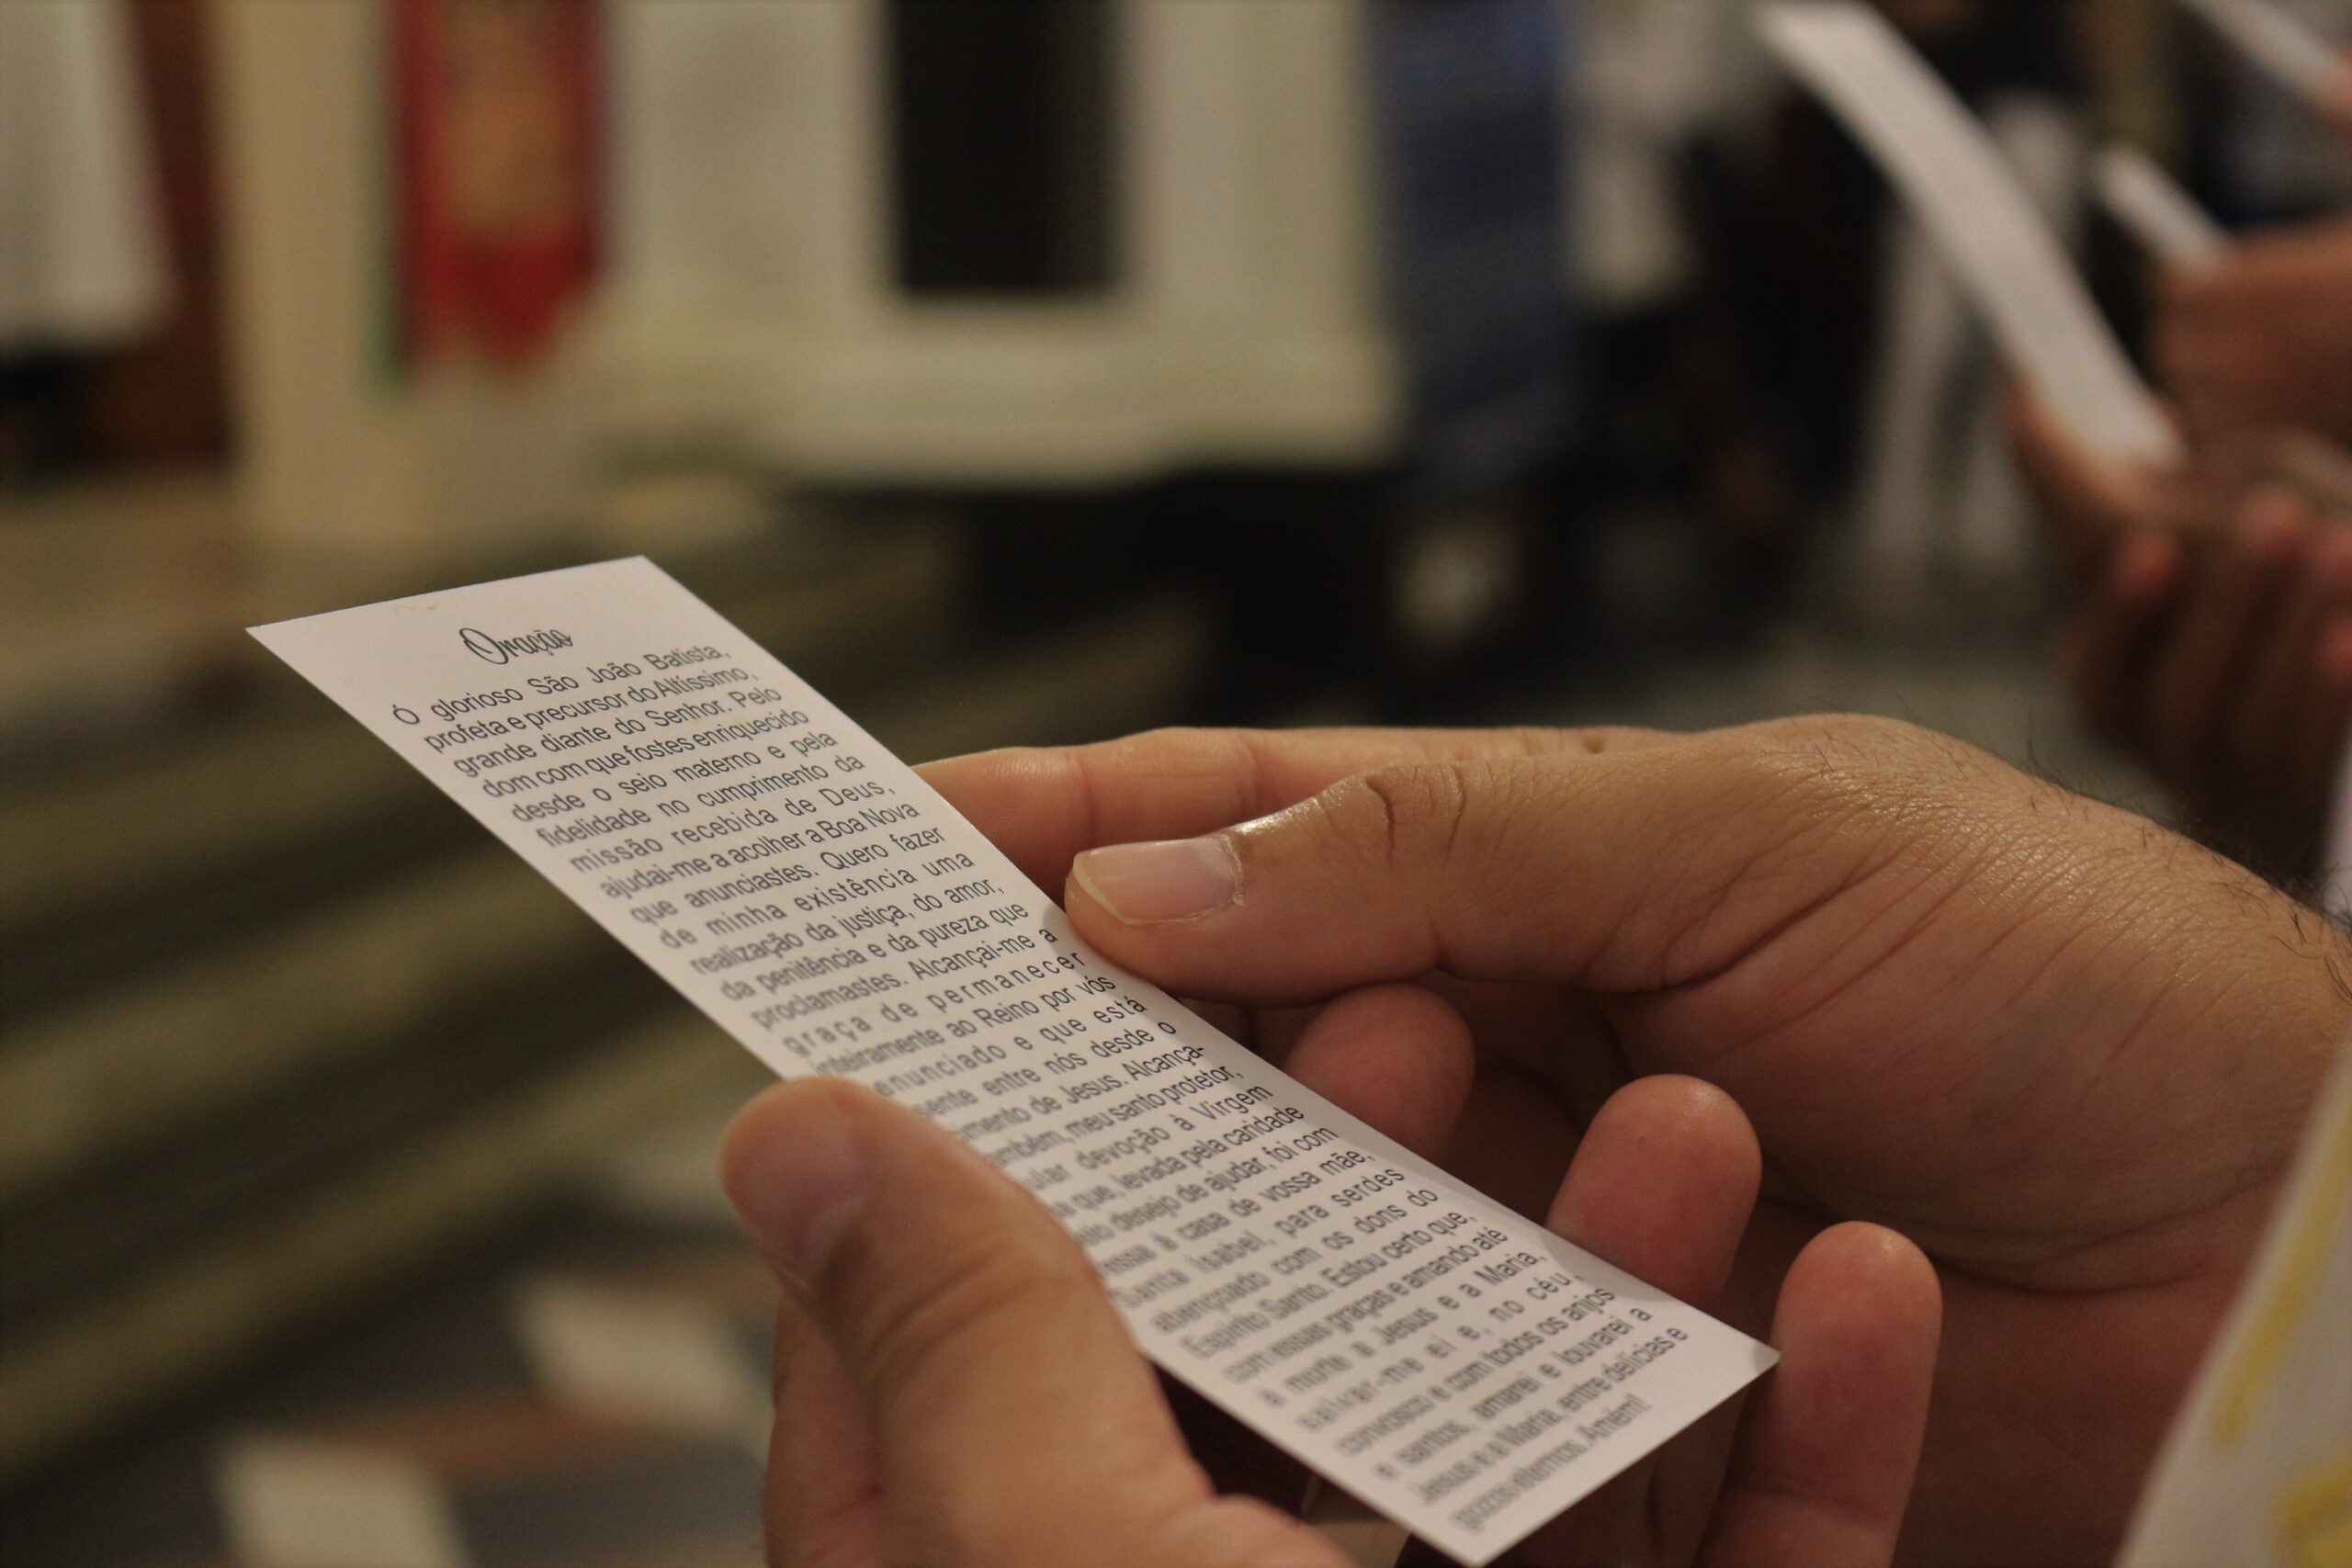 Oração
Ó glorioso São João Batista,
profeta e precursor do Altíssimo,
grande diante do Senhor. Pelo
dom com que fostes enriquecido
desde o seio materno e pela
fidelidade no cumprimento da
missão recebida de Deus,
ajudai-me a acolher a Boa Nova
que anunciastes. Quero fazer
de minha existência uma
realização da justiça, do amor,
da penitência e da pureza que
proclamastes. Alcançai-me a
graça de permanecer
inteiramente ao Reino por vós
enunciado e que está
sente entre nós desde o
imento de Jesus. Alcança-
ambém, meu santo protetor,
ular devoção à Virgem
a que, levada pela caridade
elo desejo de ajudar, foi com
essa à casa de vossa mãe,
Santa Isabel, para serdes
abençoado com os dons do
Espírito Santo. Estou certo que,
com essas graças e amando até
a morte a Jesus e a Maria,
salvar-me ei e, no céu,
convosco e com todos os anjos
e santos, amarei e louvarei a
Jesus e a Maria, entre delícias e
gozos eternos. Amém!